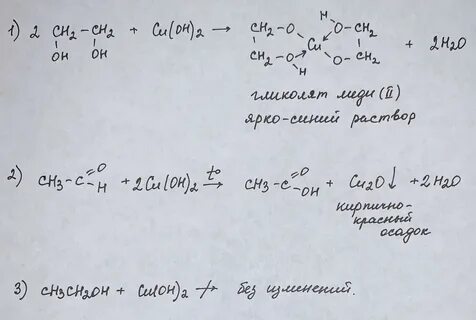 1) 2 CH2 - CH2 + Cu(OH)2 → CH2 - O H O - CH2 + 2H2O
OH OH Cu
CH2 - O H O - CH2
гликолят меди (II)
ярко-синий раствор
2) CH3 - C =O H + 2Cu(OH)2 t° → CH3 - C =O OH + Cu2O↓ + 2H2O
кирпично-
красный
осадок
3) CH3CH2OH + Cu(OH)2 ↛ без изменений.